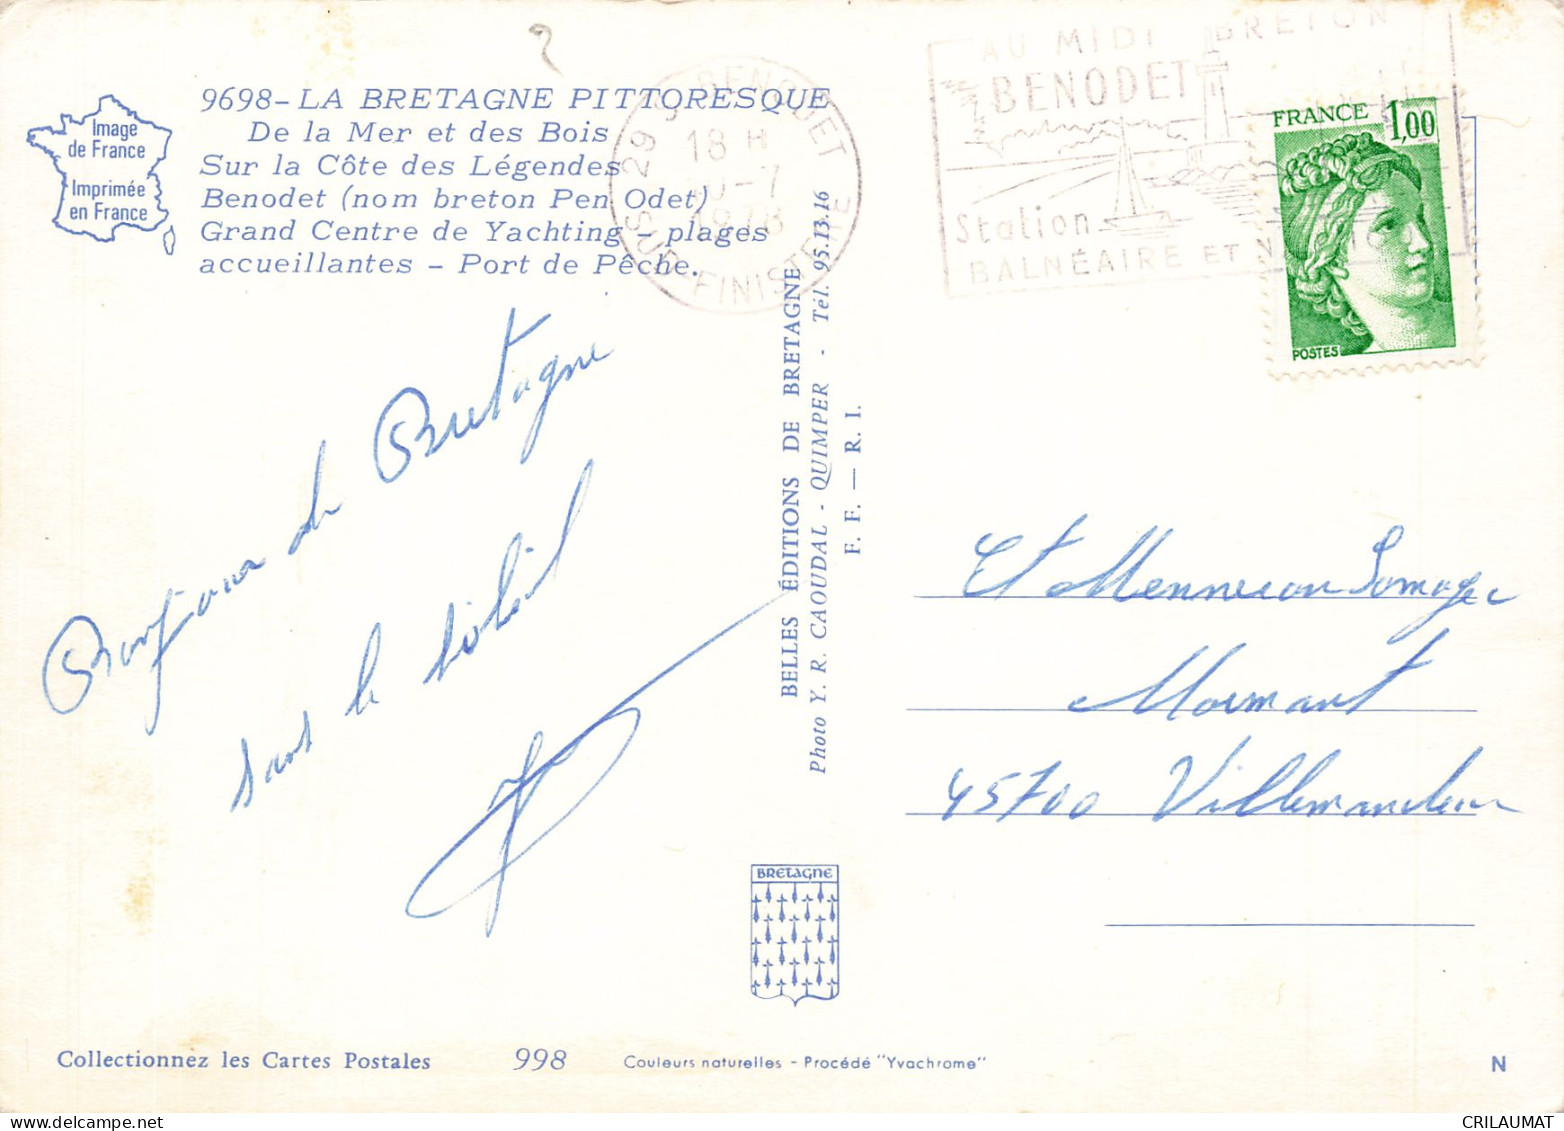 9698-LA BRETAGNE PITTORESQUE
De la Mer et des Bois
Sur la Côte des Légendes
Benodet (nom breton Pen Odet)
Grand Centre de Yachting - plages
accueillantes - Port de Pêche.
Image
de France
Imprimée
en France
29 BENODET
18 H
-7
1978
SUD-FINISTERE
AU MIDI BRETON
BENODET
Station
BALNÉAIRE ET
FRANCE 1,00
POSTES
Bonjour de Bretagne
sans le soleil
BELLES ÉDITIONS DE BRETAGNE
Photo Y. R. CAOUDAL - QUIMPER - Tél. 95.13.16
F. F. — R. I.
Et Mennecon
Mormant
45700 Villemandeur
BRETAGNE
Collectionnez les Cartes Postales
998
Couleurs naturelles - Procédé "Yvachrome"
N
CRILAUMAT